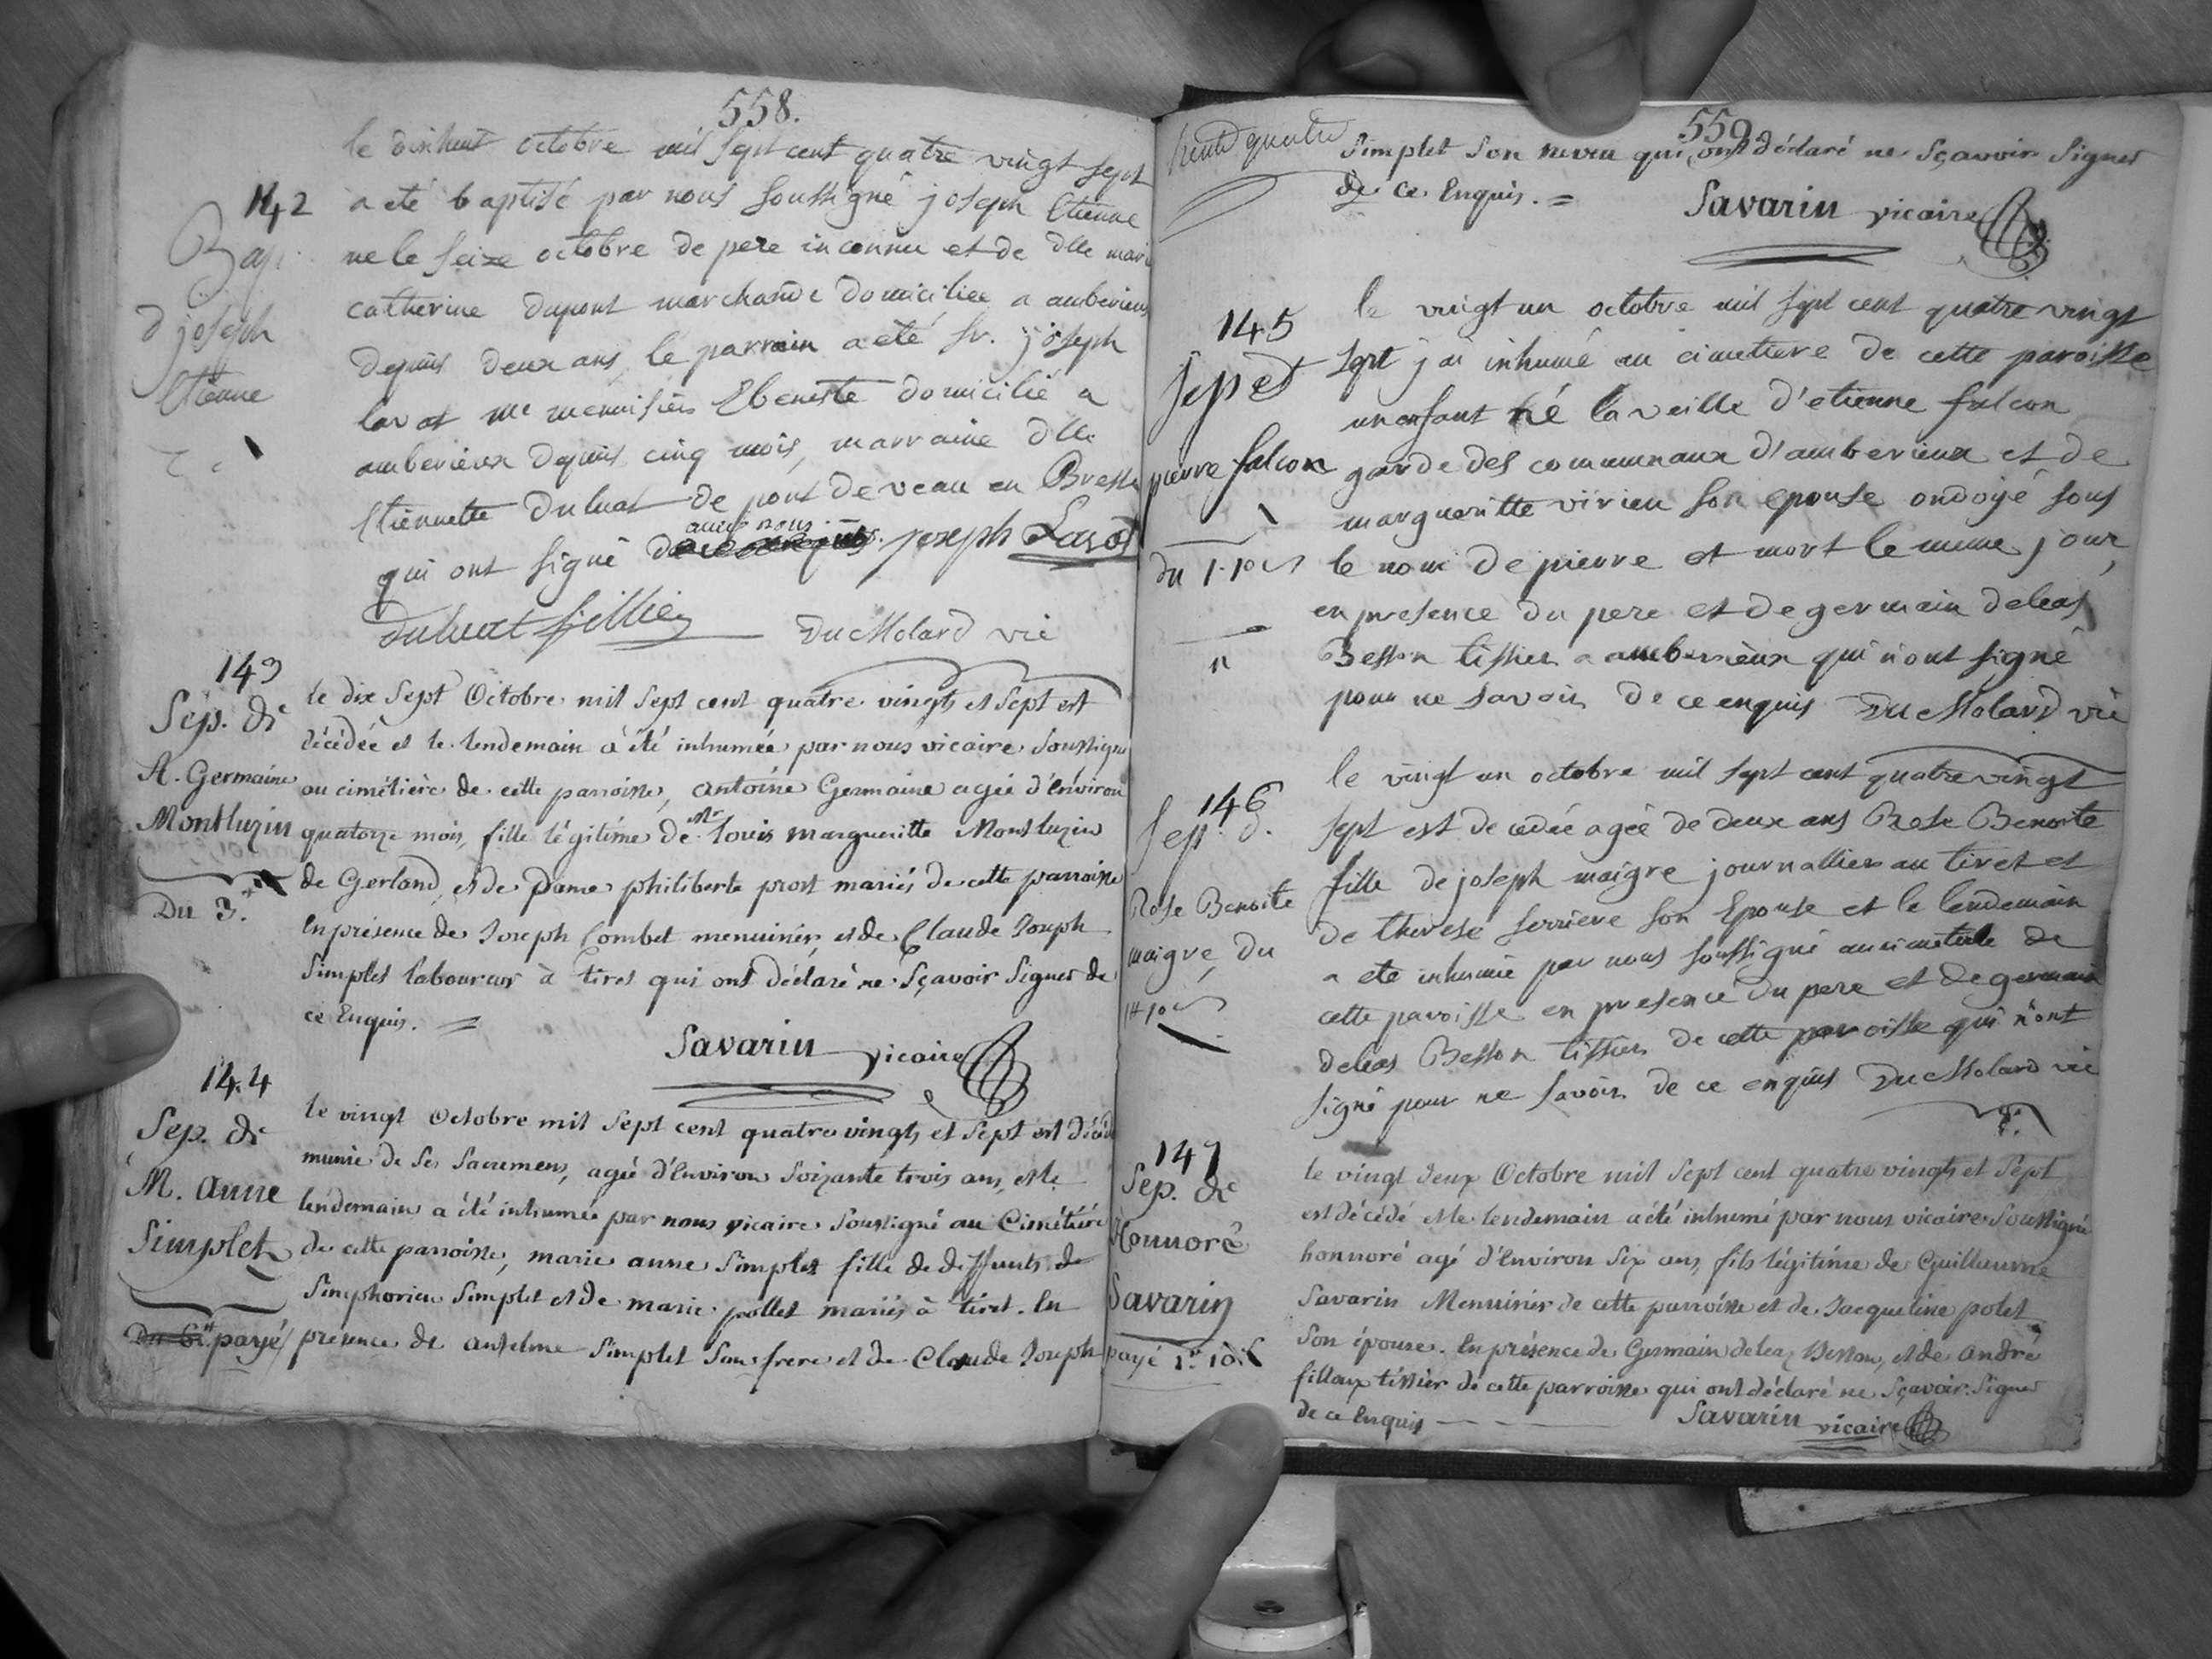 558.
142
Bap.
d joseph
Etienne
le dixhuit octobre mil sept cent quatre vingt sept
a eté baptisé par nous soussigné joseph Etienne
ne le seize octobre de pere inconnu et de dlle marie
catherine dupont marchande domiciliee a amberieux
depuis deux ans, le parrain a eté sr. joseph
lavot me menuisier Ebeniste domicilié a
amberieux depuis cinq mois, marraine dlle
Etiennette duluat de pont de veau en Bresse
qui ont signé avec nous. joseph Lavot
duluat fillie DuMolard vic
143
Sep. de
A. Germaine
Montluzin
Du 3.
le dix Sept Octobre mil Sept cent quatre vingts et Sept est
décédée et le lendemain a été inhumée par nous vicaire Soussigné
au cimétière de cette parroisse, antoine Germaine agée d'Environ
quatorze mois, fille légitime de Mr. louis margueritte Montluzin
de Gerland, et de Dame philiberte prost mariés de cette parroisse
En présence de Joseph Combet menuisier, et de Claude Joseph
Simplet laboureur à tiret qui ont déclaré ne Sçavoir Signer de
ce Enquis. =
Savarin vicaire
144
Sep. de
M. anne
Simplet
payé
le vingt Octobre mil Sept cent quatre vingts et Sept est décédé
munie de Ses Sacremens, agée d'Environ Soixante trois ans, et le
lendemain a été inhumée par nous vicaire Soussigné au Cimétière
de cette parroisse, marie anne Simplet fille de deffunts de
Simphorien Simplet et de marie pollet mariés à tiret. En
présence de antelme Simplet Son frere et de Claude Joseph
559
trente quatre
Simplet Son neveu qui ont déclaré ne Sçavoir Signer
de ce Enquis. =
Savarin vicaire
145
Sep et
pierre falcon
le vingt un octobre mil sept cent quatre vingt
sept j'ai inhumé au cimetiere de cette paroisse
un enfant né la veille d'etienne falcon
garde des communaux d'amberieux et de
margueritte virieu son epouse ondoyé sous
le nom de pierre et mort le meme jour,
en presence du pere et de germain deleas
Besson tissier a amberieux qui n'ont signé
pour ne savoir de ce enquis DuMolard vic
146
Sep. d.
Rose Benoite
maigre, Du
le vingt un octobre mil sept cent quatre vingt
sept est decedée agée de deux ans Rose Benoite
fille de joseph maigre journallier au tiret et
de therese serriere son Epouse et le lendemain
a eté inhumée par nous soussigné au cimetiere de
cette paroisse en presence du pere et de germain
deleas Besson tissier de cette paroisse qui n'ont
signé pour ne savoir de ce enquis DuMolard vic
147
Sep. de
Honnoré
Savarin
le vingt deux Octobre mil Sept cent quatre vingts et Sept
est décédé et le lendemain a été inhumé par nous vicaire Soussigné
honnoré agé d'Environ Six ans, fils légitime de Guillaume
Savarin Menuisier de cette parroisse et de Jacqueline polet
Son épouse. En présence de Germain deleaz Besson, et de André
filloux tissier de cette parroisse qui ont déclaré ne Sçavoir Signer
de ce Enquis
Savarin vicaire
payé